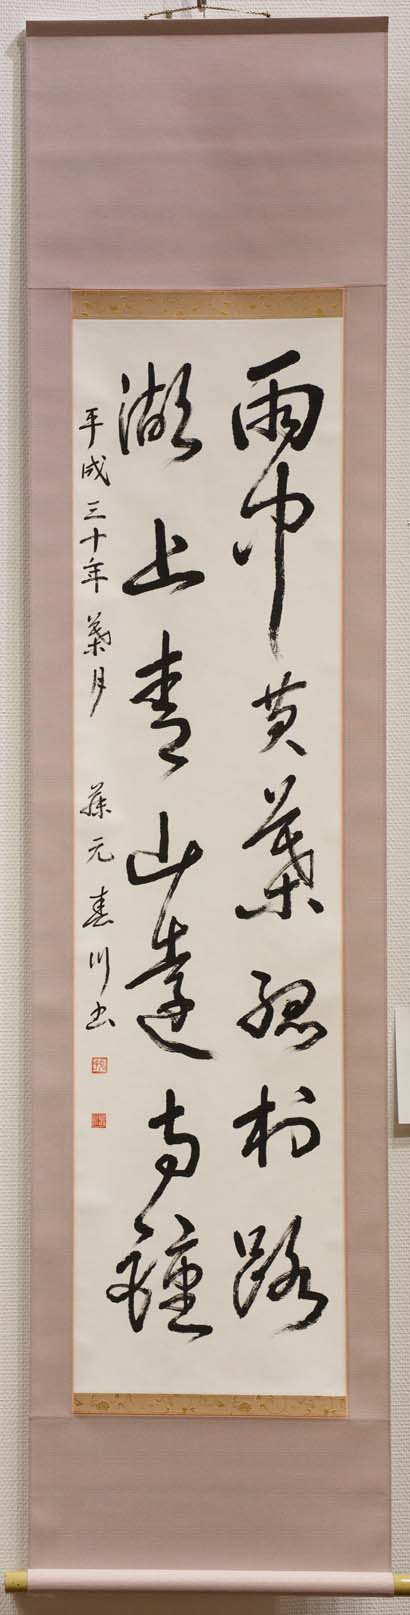 雨中黄葉孤村路
湖上青山遠寺鐘
平成三十年葉月 藤元春川書